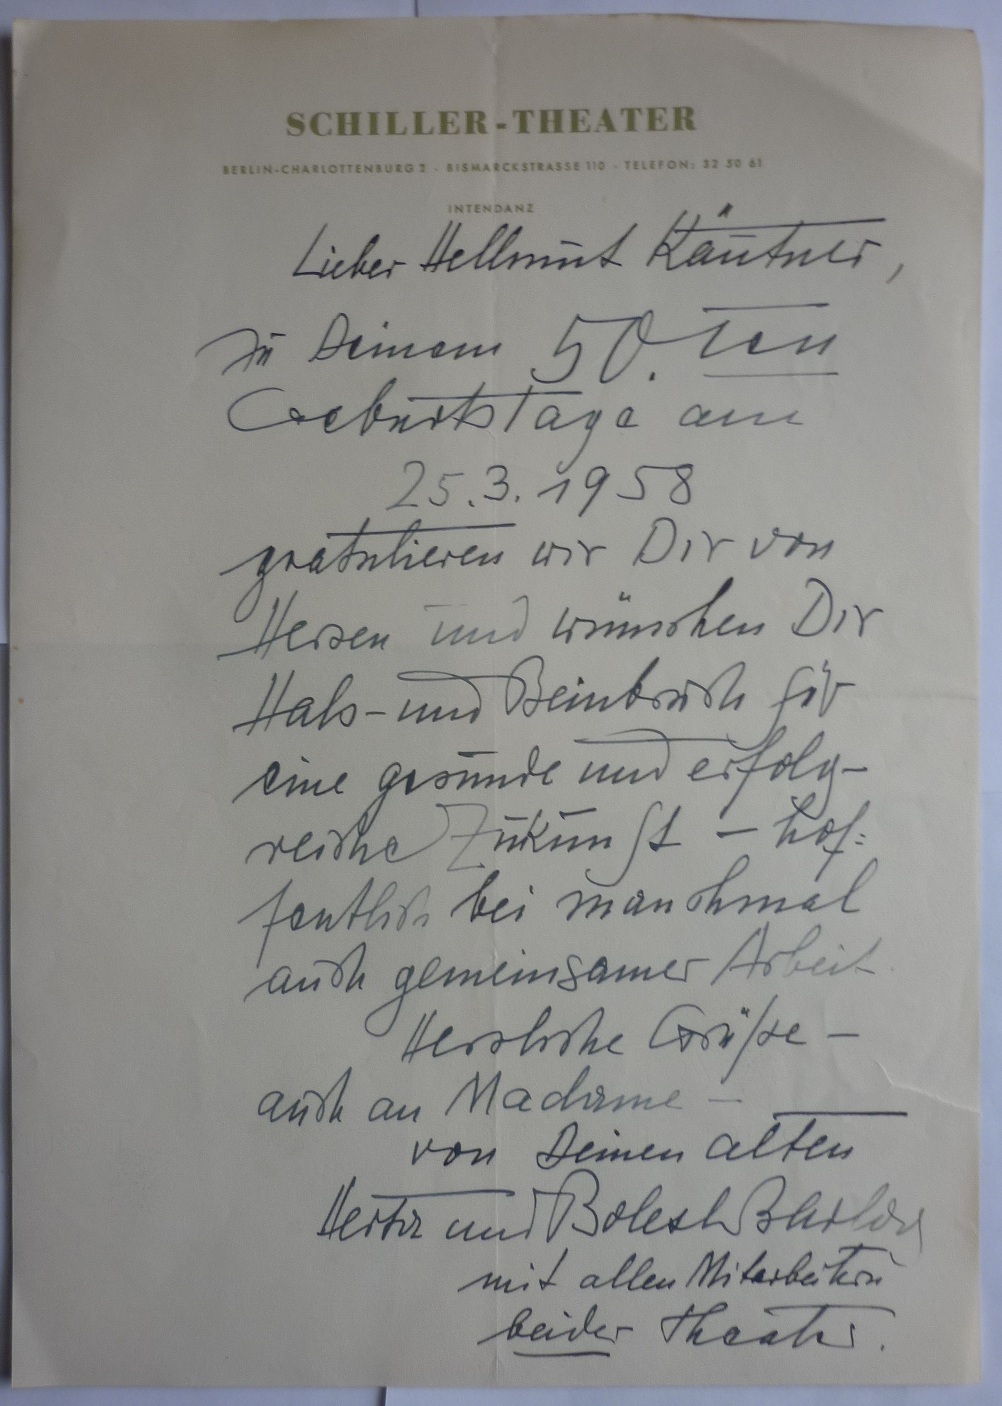 SCHILLER-THEATER
BERLIN-CHARLOTTENBURG 2 - BISMARCKSTRASSE 110 - TELEFON: 32 50 61
INTENDANZ
Lieber Hellmut Käutner,
zu Deinem 50.ten
Geburtstage am
25.3.1958
gratulieren wir Dir von
Herzen und wünschen Dir
Hals- und Beinbruch für
eine gesunde und erfolg-
reiche Zukunft – hof=
fentlich bei manchmal
auch gemeinsamer Arbeit
Herzliche Grüße –
auch an Madame –
von Deinen alten
Herta und Boleslaw Barlog
mit allen Mitarbeitern
beider Theater.